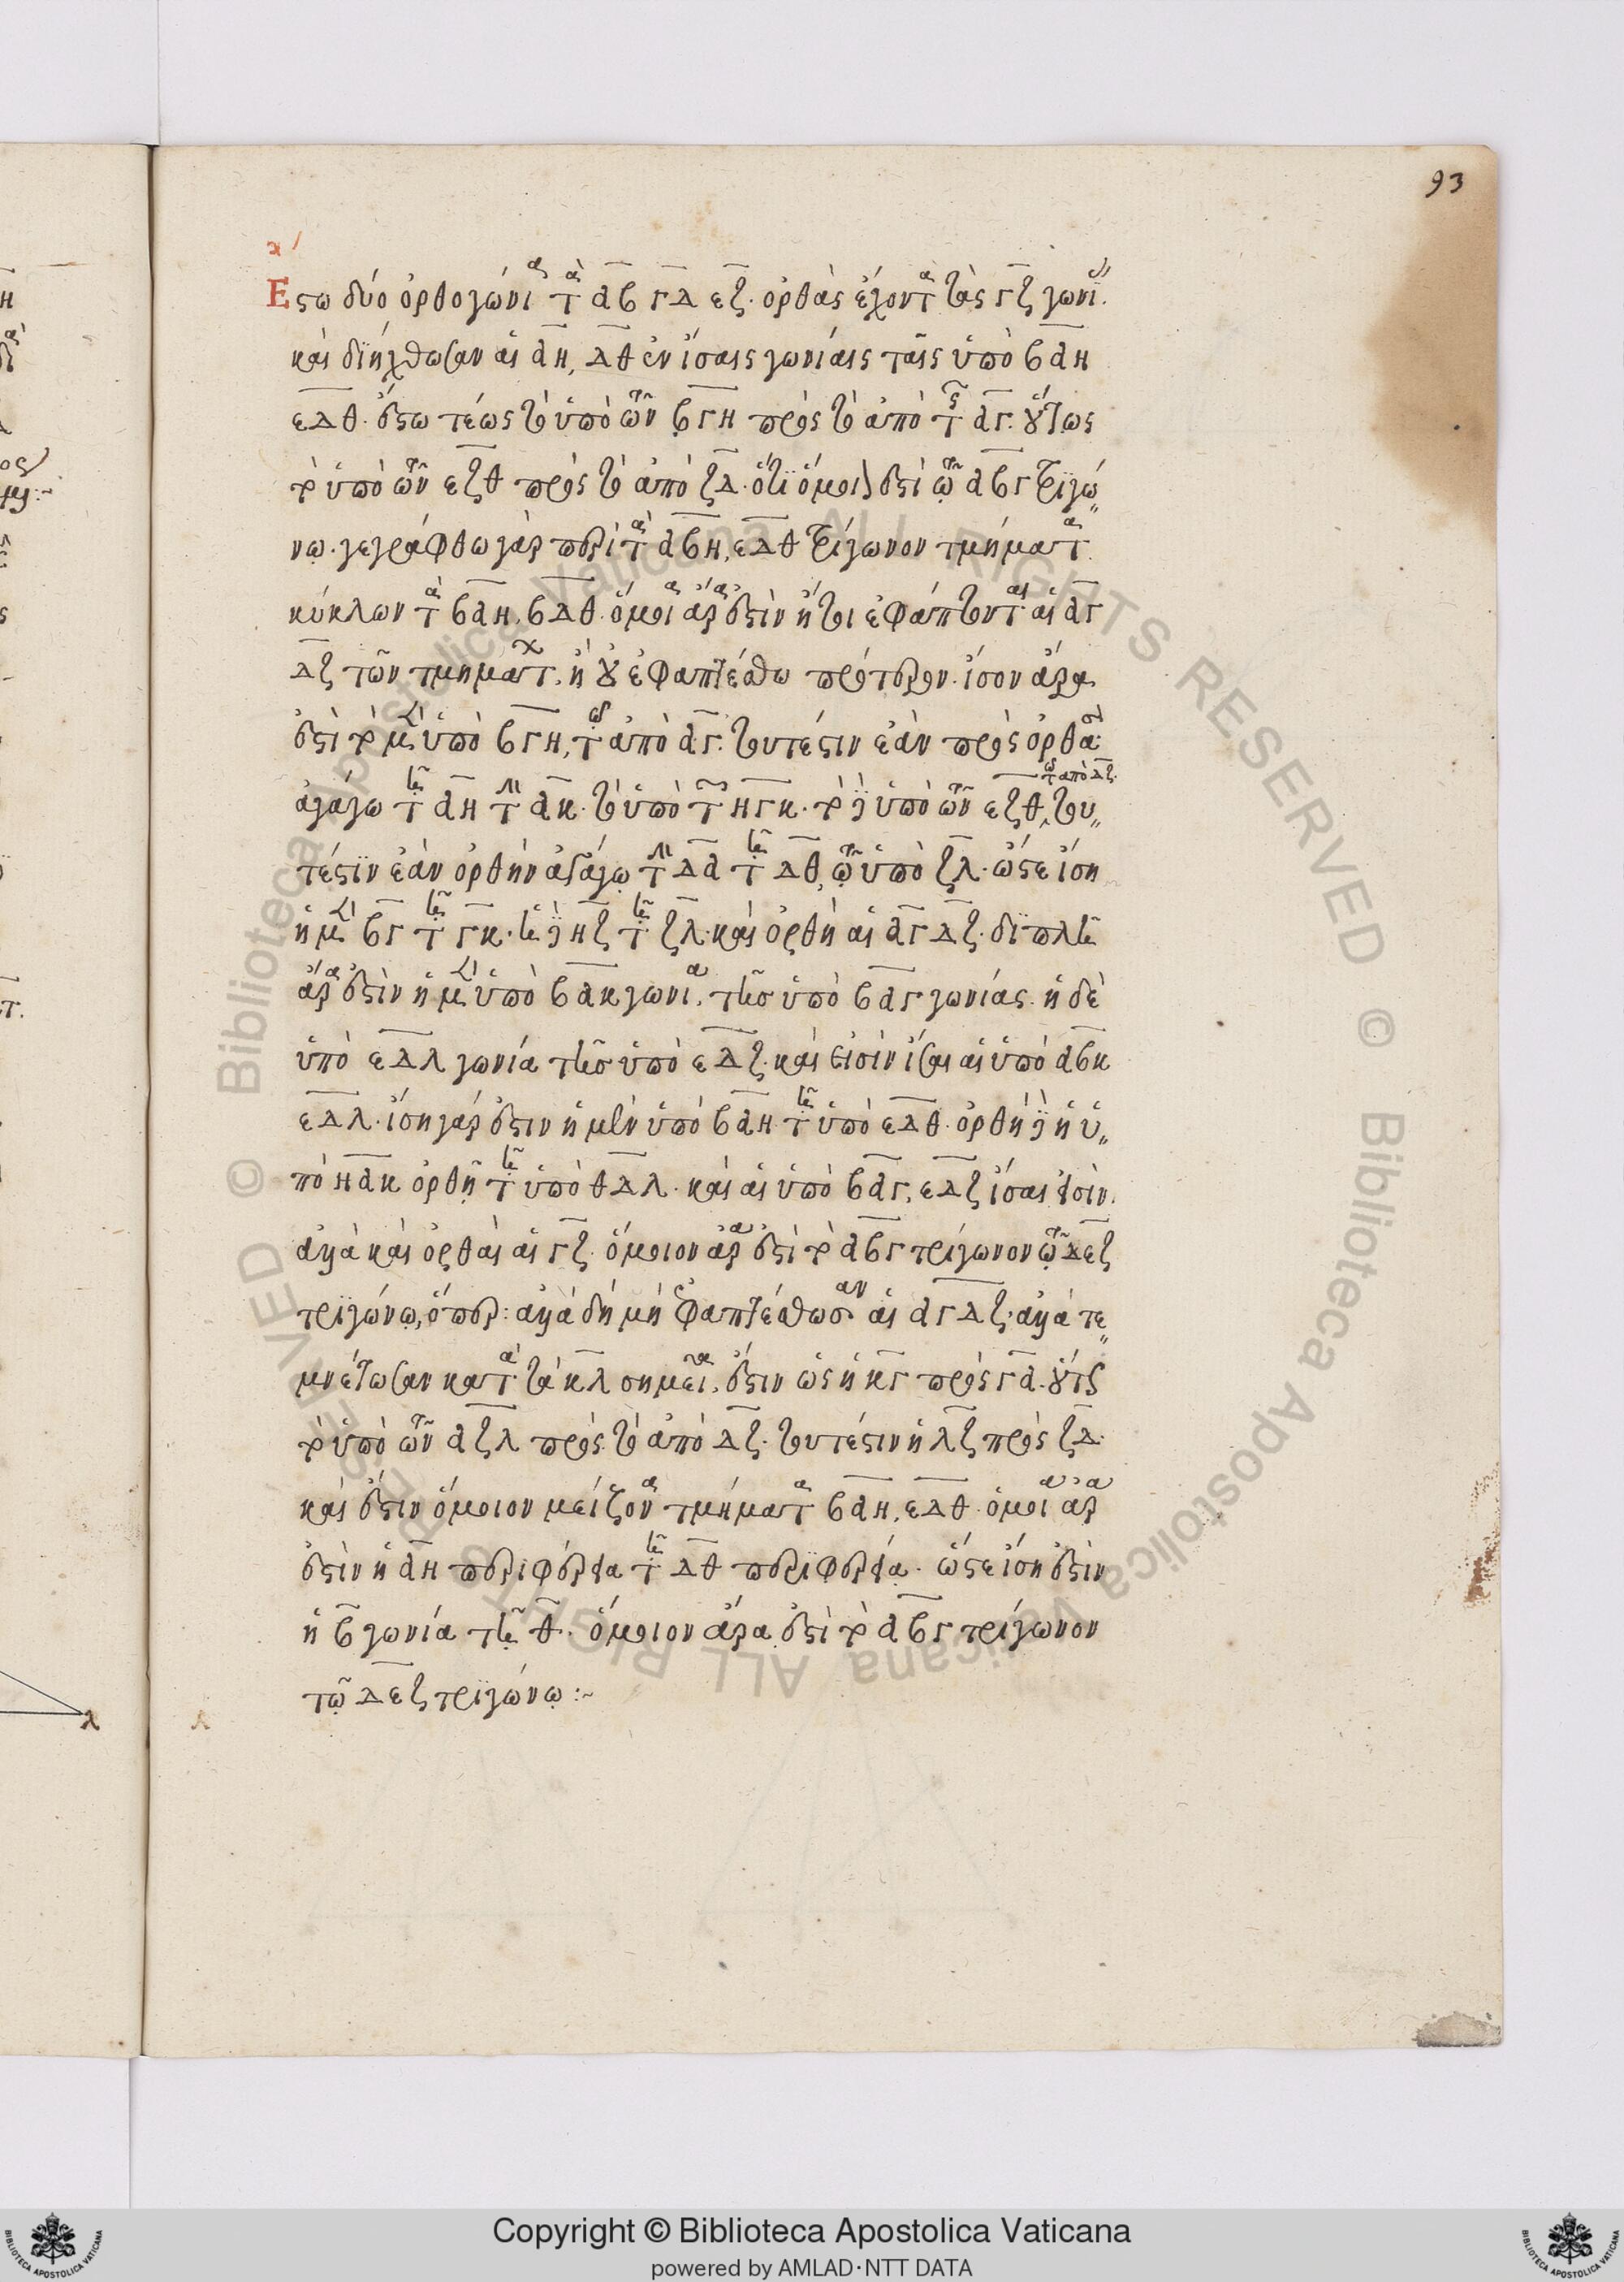 93
α
Εστω δύο ὀρθογώνια τὰ αβγ δεζ. ὀρθὰς ἔχοντα τὰς γζ γωνίας.
καὶ διήχθωσαν αἱ αη, δθ ἐν ἴσαις γωνίαις ταῖς ὑπὸ βαη
εδθ. ἔστω τέως τὸ ὑπὸ τῶν βγη πρὸς τὸ ἀπὸ τῆς αγ. οὕτως
τὸ ὑπὸ τῶν εζθ πρὸς τὸ ἀπὸ ζδ. ὅτι ὅμοιον ἐστὶ τῷ αβγ τριγώ
νῳ. γεγράφθω γὰρ περὶ τὰ αβη, εδθ τρίγωνον τμήματα
κύκλων τὰ βαη, βδθ. ὅμοια ἄρα ἐστὶν ἤτοι ἐφάπτονται αἱ αγ
δζ τῶν τμημάτων. ἢ οὔ ἐφαπτέσθω πρότερον. ἴσον ἄρα
ἐστὶ τὸ μὲν ὑπὸ βγη, τῷ ἀπὸ αγ. τουτέστιν ἐὰν πρὸς ὀρθὰς
ἀγάγω τῇ αη τὴν ακ. τὸ ὑπὸ τῶν ηγκ. τὸ δὲ ὑπὸ τῶν εζθ, τῷ ἀπὸ δζ. του
τέστιν ἐὰν ὀρθὴν ἀγάγω τὴν δα τῇ δθ, τῷ ὑπὸ ζλ. ὥστε ἴση
ἡ μὲν βγ τῇ γκ. ἡ δὲ ηζ τῇ ζλ. καὶ ὀρθὴ αἱ αγ δζ. διπλῆ
ἄρα ἐστὶν ἡ μὲν ὑπὸ βακ γωνία. τῆς ὑπὸ βαγ γωνίας. ἡ δὲ
ὑπὸ εδλ γωνία τῆς ὑπὸ εδζ. καὶ εἰσὶν ἴσαι αἱ ὑπὸ αβκ
εδλ. ἴση γάρ ἐστιν ἡ μὲν ὑπὸ βαη τῇ ὑπὸ εδθ. ὀρθὴ δὲ ἡ ὑ
πὸ ηακ ὀρθῇ τῇ ὑπὸ θδλ. καὶ αἱ ὑπὸ βαγ, εδζ ἴσαι εἰσίν.
ἀλλὰ καὶ ὀρθαὶ αἱ γζ. ὅμοιον ἄρα ἐστὶ τὸ αβγ τρίγωνον τῷ δεζ
τριγώνῳ, ὅπερ: ἀλλὰ δὴ μὴ ἐφαπτέσθωσαν αἱ αγ δζ. ἀλλὰ τε
μνέτωσαν κατὰ τὰ κλ σημεῖα. ἔστιν ὡς ἡ κγ πρὸς γα. οὕτως
τὸ ὑπὸ τῶν αζλ πρὸς τὸ ἀπὸ δζ. τουτέστιν ἡ λζ πρὸς ζδ.
καὶ ἔστιν ὅμοιον μείζονα τμήματα βαη, εδθ. ὁμοία ἄρα
ἐστὶν ἡ αη περιφέρεια τῇ δθ περιφερείᾳ. ὥστε ἴση ἐστὶν
ἡ β γωνία τῇ θ. ὅμοιον ἄρα ἐστὶ τὸ αβγ τρίγωνον
τῷ δεζ τριγώνῳ :~
λ
Copyright © Biblioteca Apostolica Vaticana
powered by AMLAD·NTT DATA